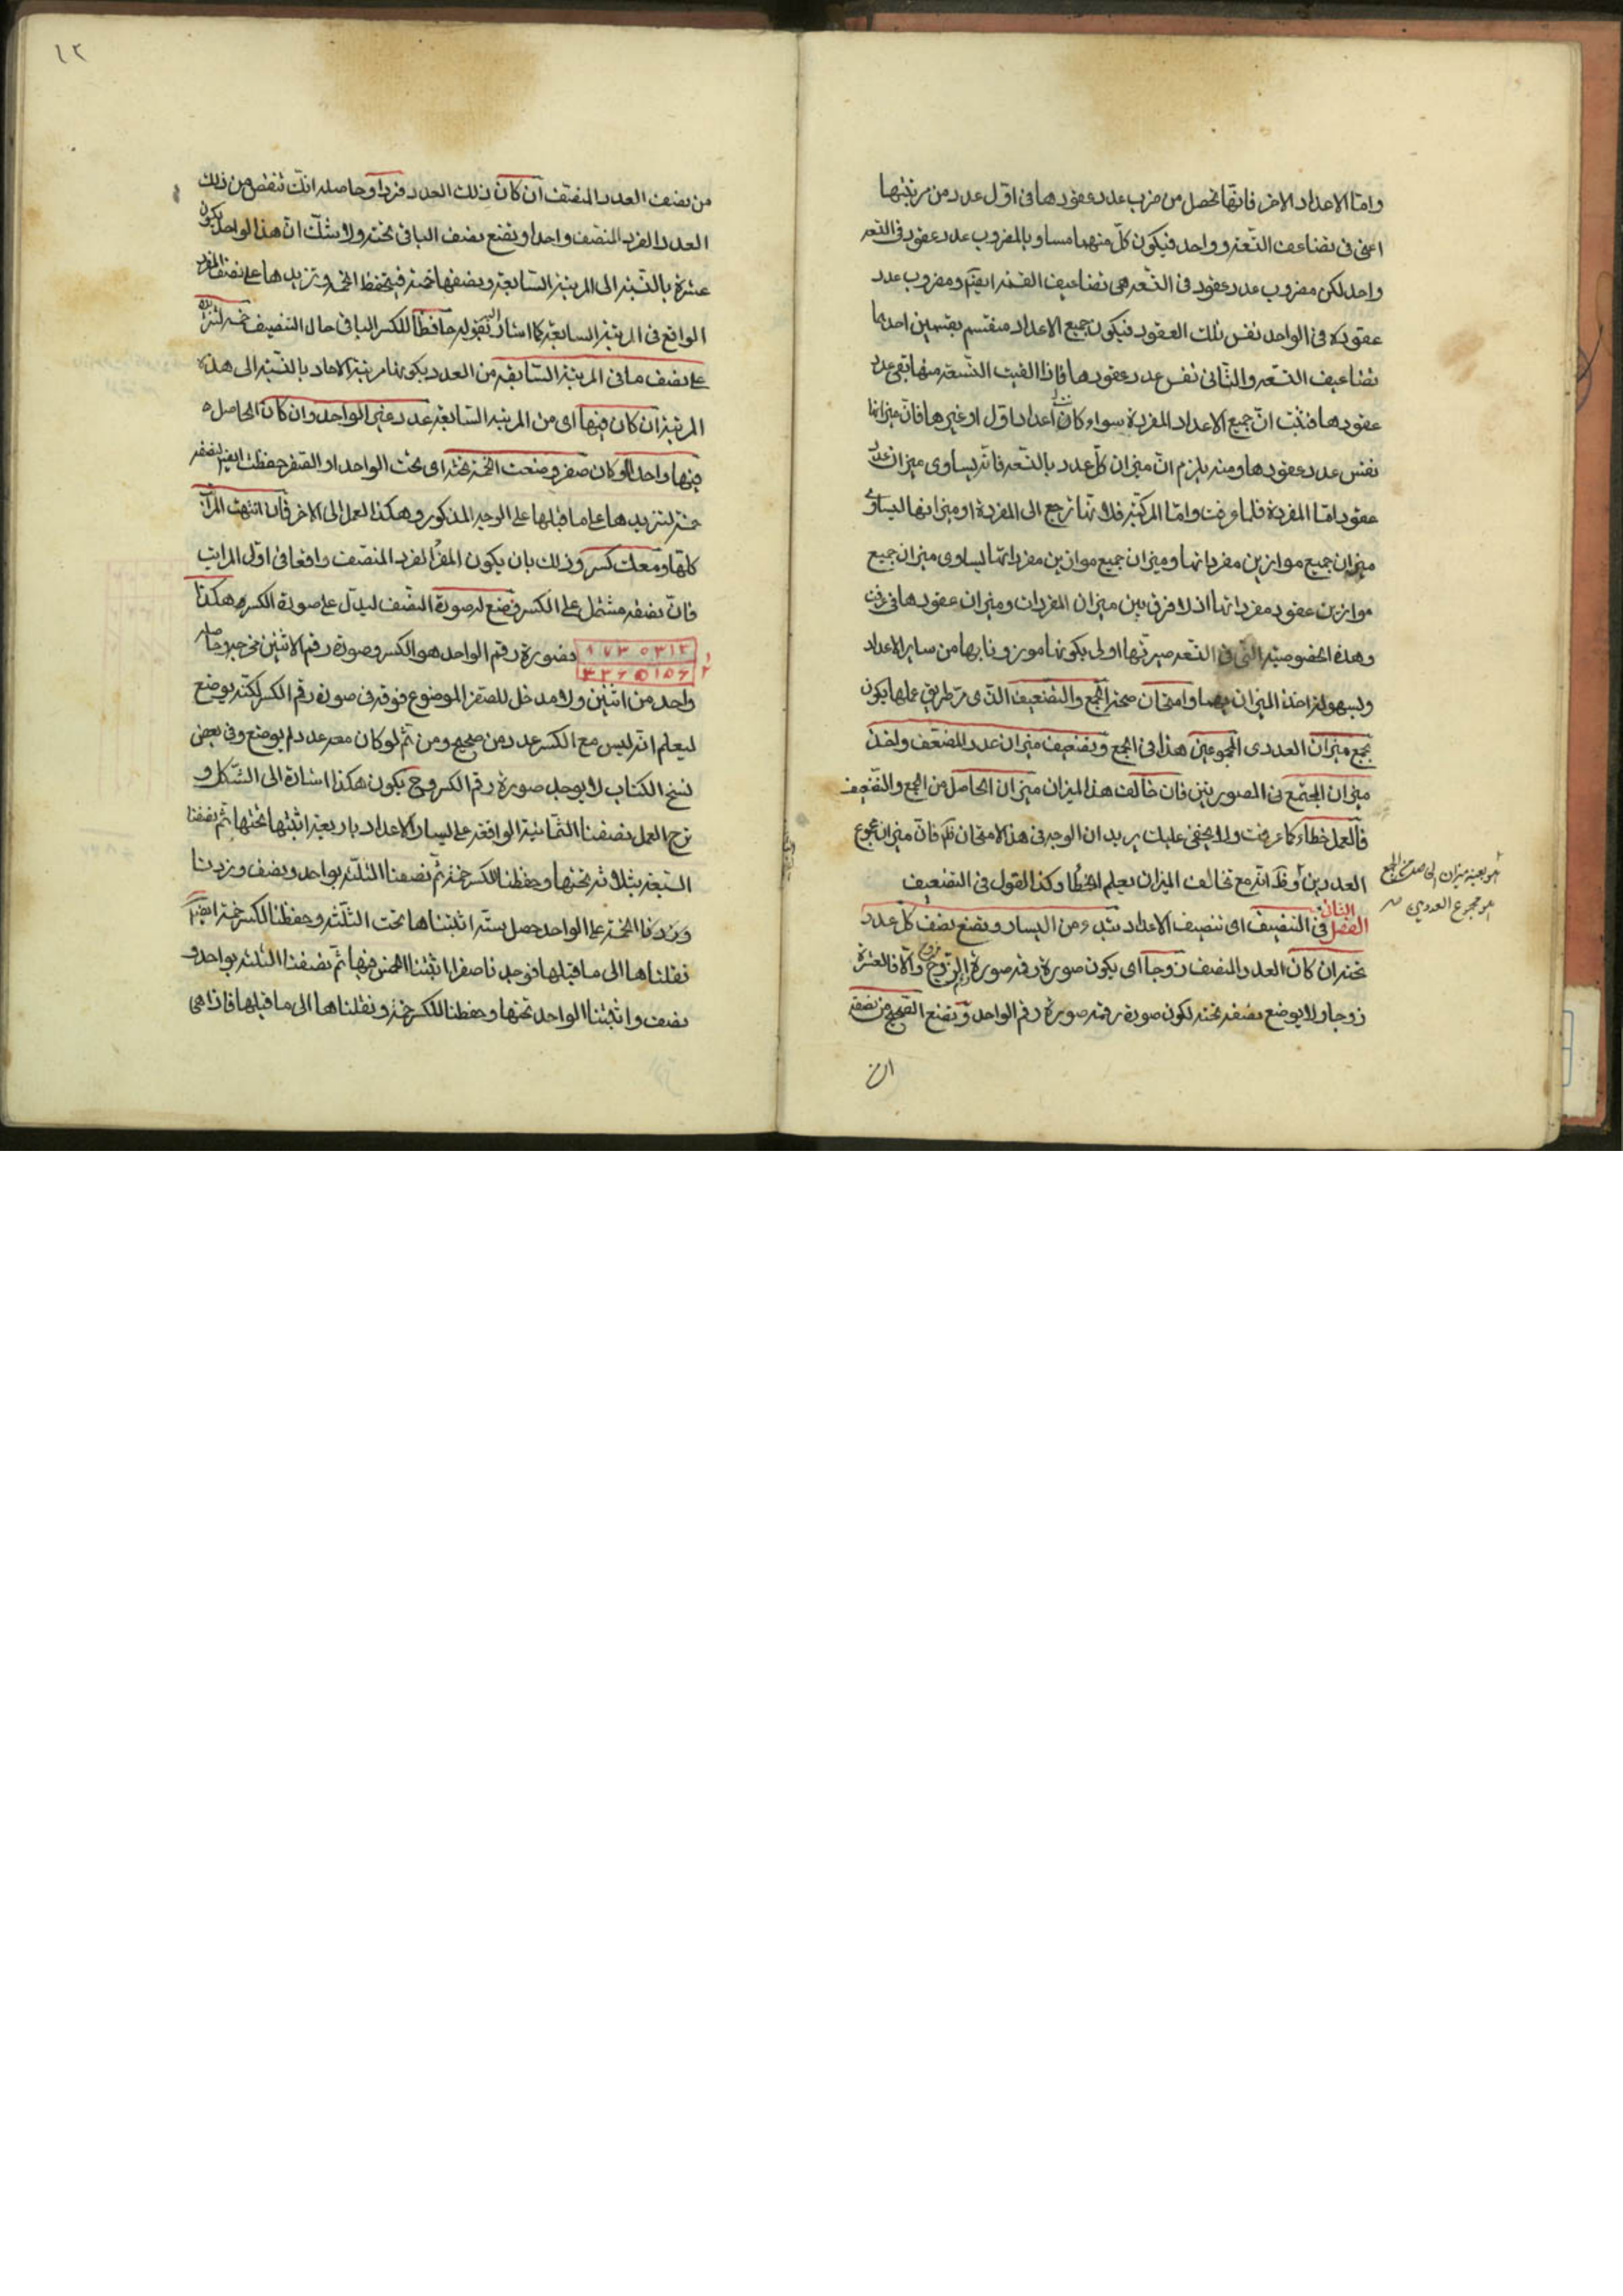 واما الاعداد الاخر فانها تحصل من ضرب عدد عقودها فى اول عدد من مرتبتها
اعنى فى تضاعف التسعة وواحد فيكون كل منهما مساويا لمضروب عدد عقوده فى التسعة
واحد لكن مضروب عدد عقود فى التسعة هى تضاعيف التسعة ايضا ومضروب عدد
عقوده فى الواحد نفس تلك العقود فيكون جميع الاعداد منقسم بقسمين احدهما
تضاعيف التسعة والثانى نفس عدد عقودها فاذا القيت التسعة منها بقى عدد
عقودها فثبت ان جميع الاعداد المفردة سواء كانت اعدادا اول او غيرها فان ميزانها
نفس عدد عقودها ومنه يلزم ان ميزان كل عدد بالتسعة فانه يساوى ميزان عدد
عقوده اما المفردة فلما عرفت واما المركبة فلانها ترجع الى المفردة او ميزانها ليساوى
ميزان جميع موازين مفرداتها وميزان جميع موازين مفرداتها يساوى ميزان جميع
موازين عقود مفرداتها اذ لا فرق بين ميزان المفردات وميزان عقودها فى عرفت
وهذه الخصوصية التى فى التسعة صيرتها اولى بكونها موزونا بها من ساير الاعداد
ولسهولة اخذ الميزان بها وامتحان صحة الجمع والتضعيف الذى مر طريق عملها يكون
بجمع ميزان العددى المجموعين هذا فى الجمع وتضعيف ميزان عدد المضعف واخذ
ميزان المجتمع فى الصورتين فان خالف هذا الميزان ميزان الحاصل من الجمع والتضعيف
فالعمل خطاء كما عرفت ولا يخفى عليك يريد ان الوجه فى هذا الامتحان ظ فان ميزان مجموع
العددين وظ انه مع تخالف الميزان يعلم الخطأ وكذا القول فى التضعيف
هو بعينه ميزان الحاصل من الجمع
هو مجموع العددين
الفصل الثالث فى التنصيف اى تنصيف الاعداد تبدء من اليسار وتضع نصف كل عدد
تحته ان كان العدد المنصف زوجا اى يكون صورة رقمه صورة الزوج والا فالعشرة
زوجا ولا يوضع نصفه تحته لكون صورة رقمه صورة رقم الواحد وتضع الصحيح من نصفه
ان
١٢
من نصف العدد المنصف ان كان ذلك العدد فردا وحاصله انك تنقص من ذلك
العدد الفرد المنصف واحدا وتضع نصف الباقى تحته ولا شك ان هذا الواحد يكون
عشرة بالنسبة الى المرتبة السابقة ونصفها خمسة فتحفظ الخمسة وتزيدها على نصف المفرد
الواقع فى المرتبة السابقة كما اشار اليه بقوله حافظا للكسر الباقى حال التنصيف خمسة لتزيده
على نصف ما فى المرتبة السابقة من العدد بكونها مرتبة الاحاد بالنسبة الى هذه
المرتبة ان كان فيها اى من المرتبة السابقة عدد غير الواحد وان كان الحاصل
فيها واحد او كان صفر وضعت الخمسة تحته اى تحت الواحد او الصفر حفظت ايضا لنصفه
خمسة لتزيدها على ما قبلها على الوجه المذكور وهكذا العمل الى الاخر فان انتهت المراتب
كلها ومعك كسر وذلك بان يكون المفرد الفرد المنصف واقعا فى اول المراتب
فان نصفه مشتمل على الكسر فضع له صورة النصف ليدل على صورة الكسر هكذا
٨ ٧ ٣ ٥ ٣ ١ ٣
٤ ٣ ٦ ٥ ١ ٥ ٦
١
٢
فصورة رقم الواحد هو الكسر وصورة رقم الاثنين مخرجه وحاصله
واحد من اثنين ولا مدخل للصفر الموضوع فوقه فى صورة رقم الكسر لكنه يوضع
ليعلم انه ليس مع الكسر عدد من صحيح ومن ثم لو كان معه عدد لم يوضع وفى بعض
نسخ الكتاب لا يوجد صورة رقم الكسر وح يكون هكذا اشارة الى الشكل و
شرح العمل نصفنا الثمانية الواقعة على يسار الاعداد باربعة اثبتها تحتها ثم نصفنا
السبعة بثلاثة تحتها وحفظنا للكسر خمسة ثم نصفنا الثلثة بواحد ونصف وزدنا
وزدنا الخمسة على الواحد حصل ستة اثبتناها تحت الثلثة وحفظنا للكسر خمسة ايضا
نقلناها الى ما قبلها فوجدنا صفرا اثبتنا الخمس فيها ثم نصفنا الثلثة بواحد و
نصف واثبتنا الواحد تحتها وحفظنا للكسر خمسة ونقلناها الى ما قبلها فاذا هى